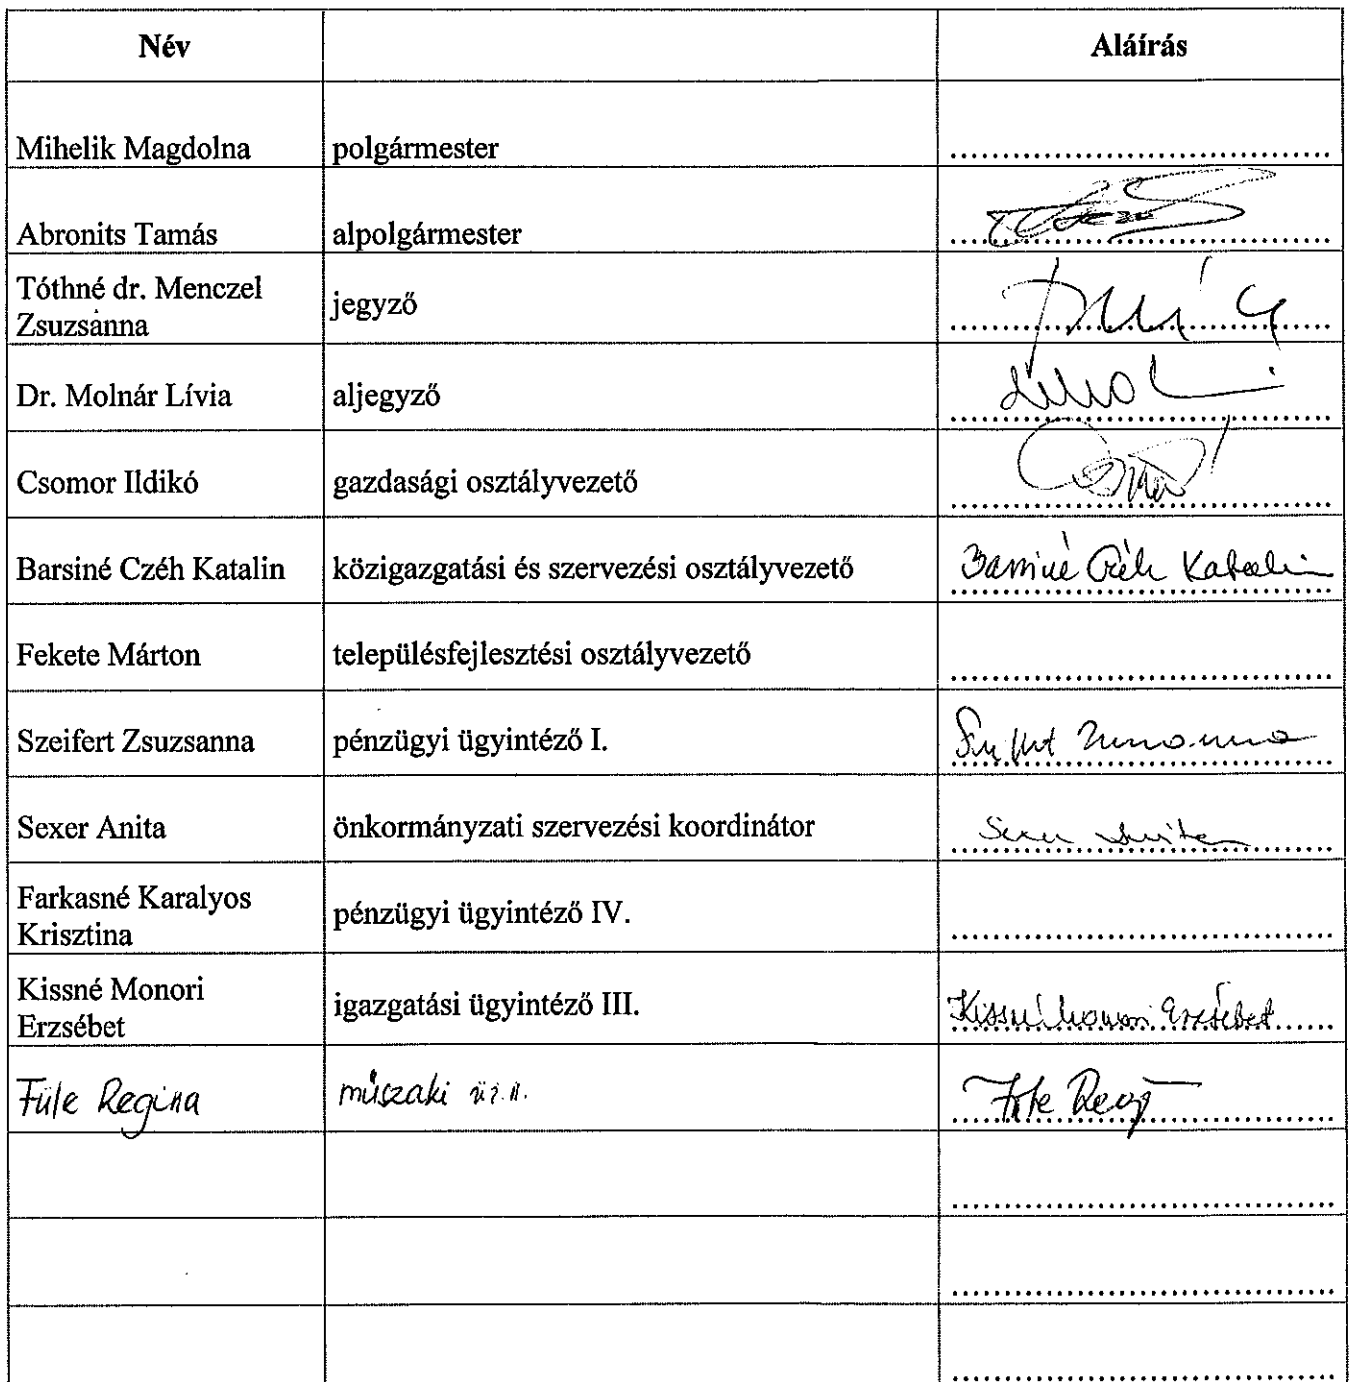 Név Aláírás
Mihelik Magdolna polgármester ................................
Abronits Tamás alpolgármester
Tóthné dr. Menczel
Zsuzsanna
jegyző
Dr. Molnár Lívia aljegyző
Csomor Ildikó gazdasági osztályvezető
Barsiné Czéh Katalin közigazgatási és szervezési osztályvezető Barsiné Czéh Katalin
Fekete Márton településfejlesztési osztályvezető ................................
Szeifert Zsuzsanna pénzügyi ügyintéző I. Szeifert Zsuzsanna
Sexer Anita önkormányzati szervezési koordinátor Sexer Anita
Farkasné Karalyos
Krisztina
pénzügyi ügyintéző IV. ................................
Kissné Monori
Erzsébet
igazgatási ügyintéző III. Kissné Monori Erzsébet
Füle Regina műszaki Füle Regi
................................
................................
................................